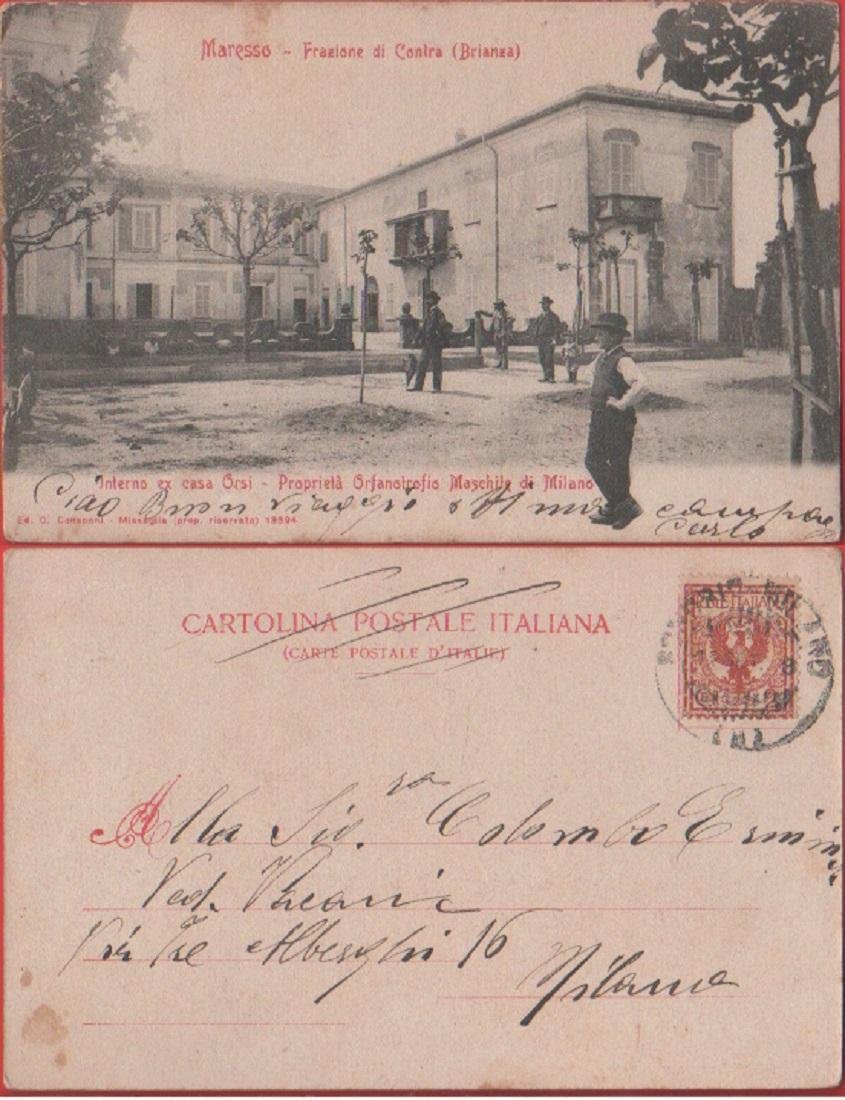 Maresso - Frazione di Contra (Brianza)
Interno ex casa Orsi - Proprietà Orfanotrofio Maschile di Milano
Ciao Buon Viaggio
Carlo
Ed. C. Consonni - Missaglia (prop. riservata) 18894
CARTOLINA POSTALE ITALIANA
(CARTE POSTALE D'ITALIE)
POSTE ITALIANE
MILANO
Alla Sig.ra Colombo Erminia
Ved.
Via Tre Alberghi 16
Milano